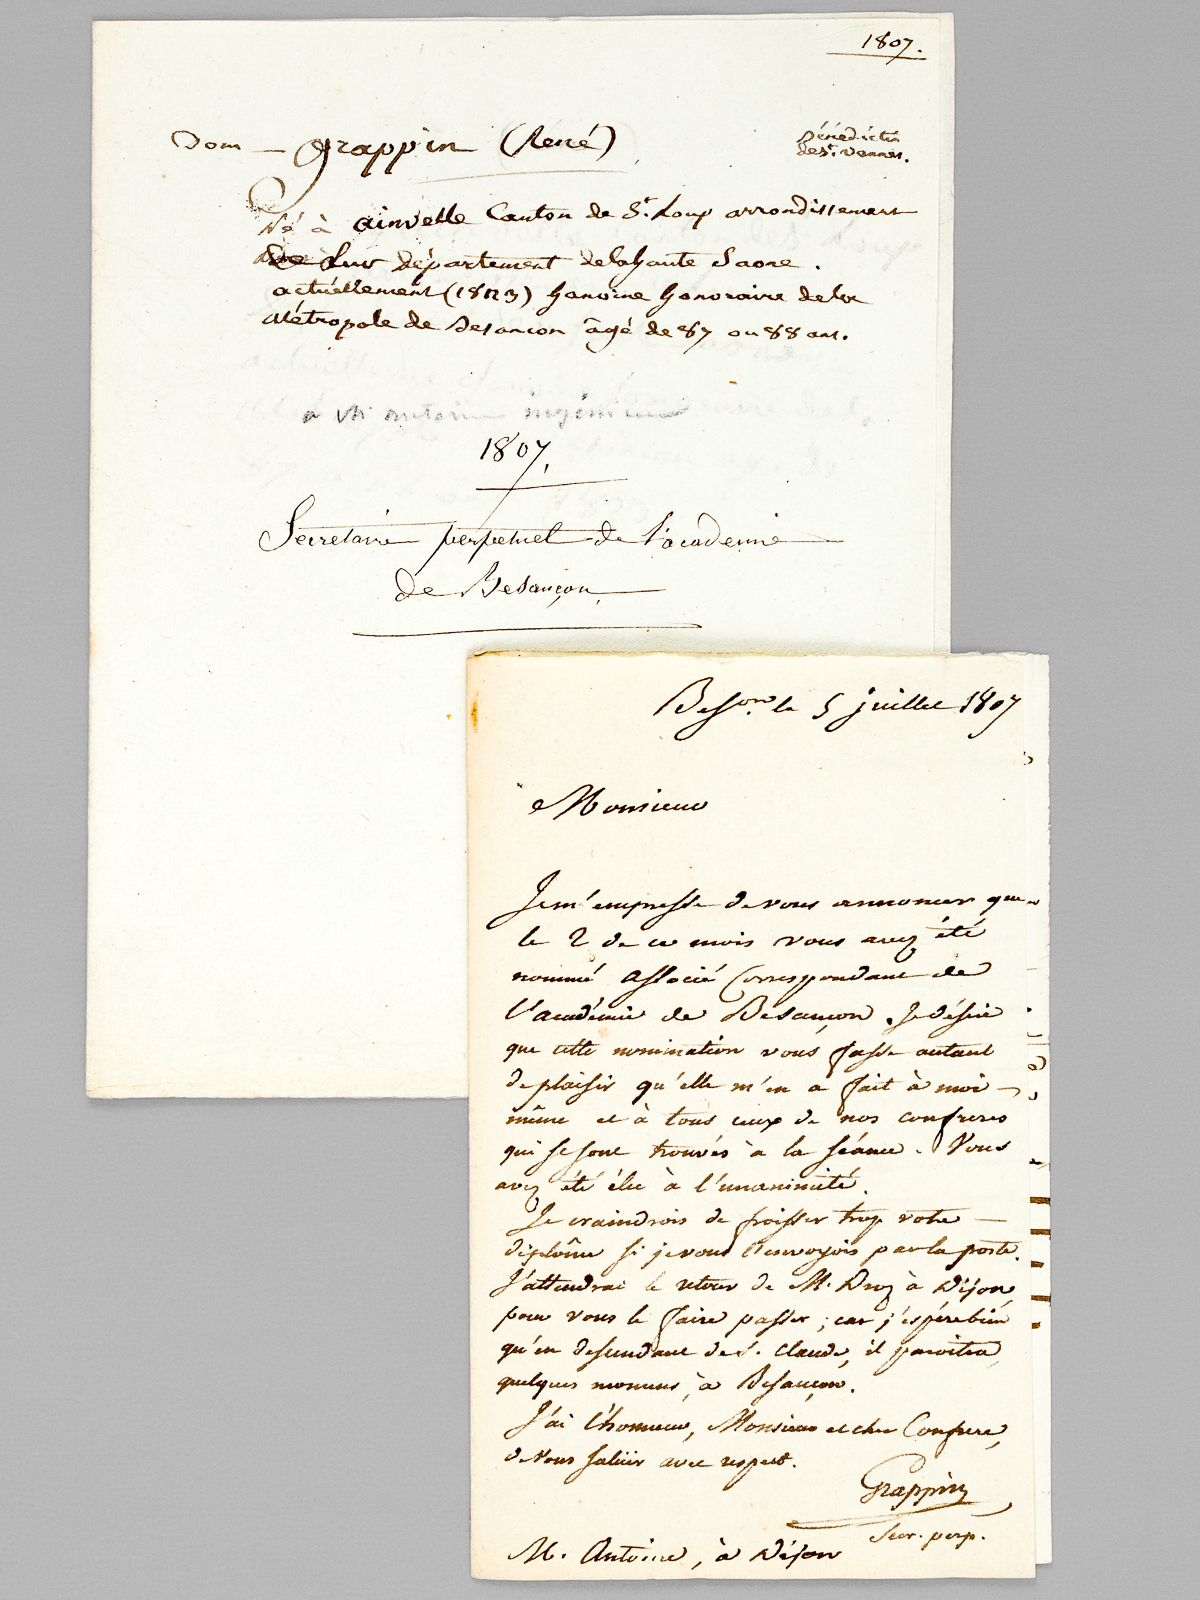 1807.
Dom — Grappin (René)
Bénédictin
de St. Vannes.
Né à ainvelle Canton de St. Loup arrondissement
de Lur département de la haute Saone.
actuellement (1823) hanoine honoraire de la
Métropole de Besancon âgé de 87 ou 88 ans.
a Mr antoine ingénieur
1807,
Secretaire perpetuel de l'academie
de Besançon.
Beson. le 5 juillet 1807
Monsieur
Je m'empresse de vous annoncer que
le 2 de ce mois vous avez été
nommé associé Correspondant de
l'académie de Besançon. Je désire
que cette nomination vous fasse autant
de plaisir qu'elle m'en a fait à moi —
même et à tous ceux de nos confreres
qui se sont trouvés à la séance. Vous
avez été élu à l'unanimité.
Je craindrois de froisser trop votre —
diplôme si je vous l'envoyois par la poste.
J'attendrai le retour de M. Droz à Dijon,
pour vous le faire passer ; car j'espére bien
qu'en descendant de S. Claude, il paroitra
quelques momens à Besançon.
J'ai l'honneur, Monsieur et cher Confrere,
de vous saluer avec respect.
Grappin
Secr. perp.
M. Antoine, à Dijon